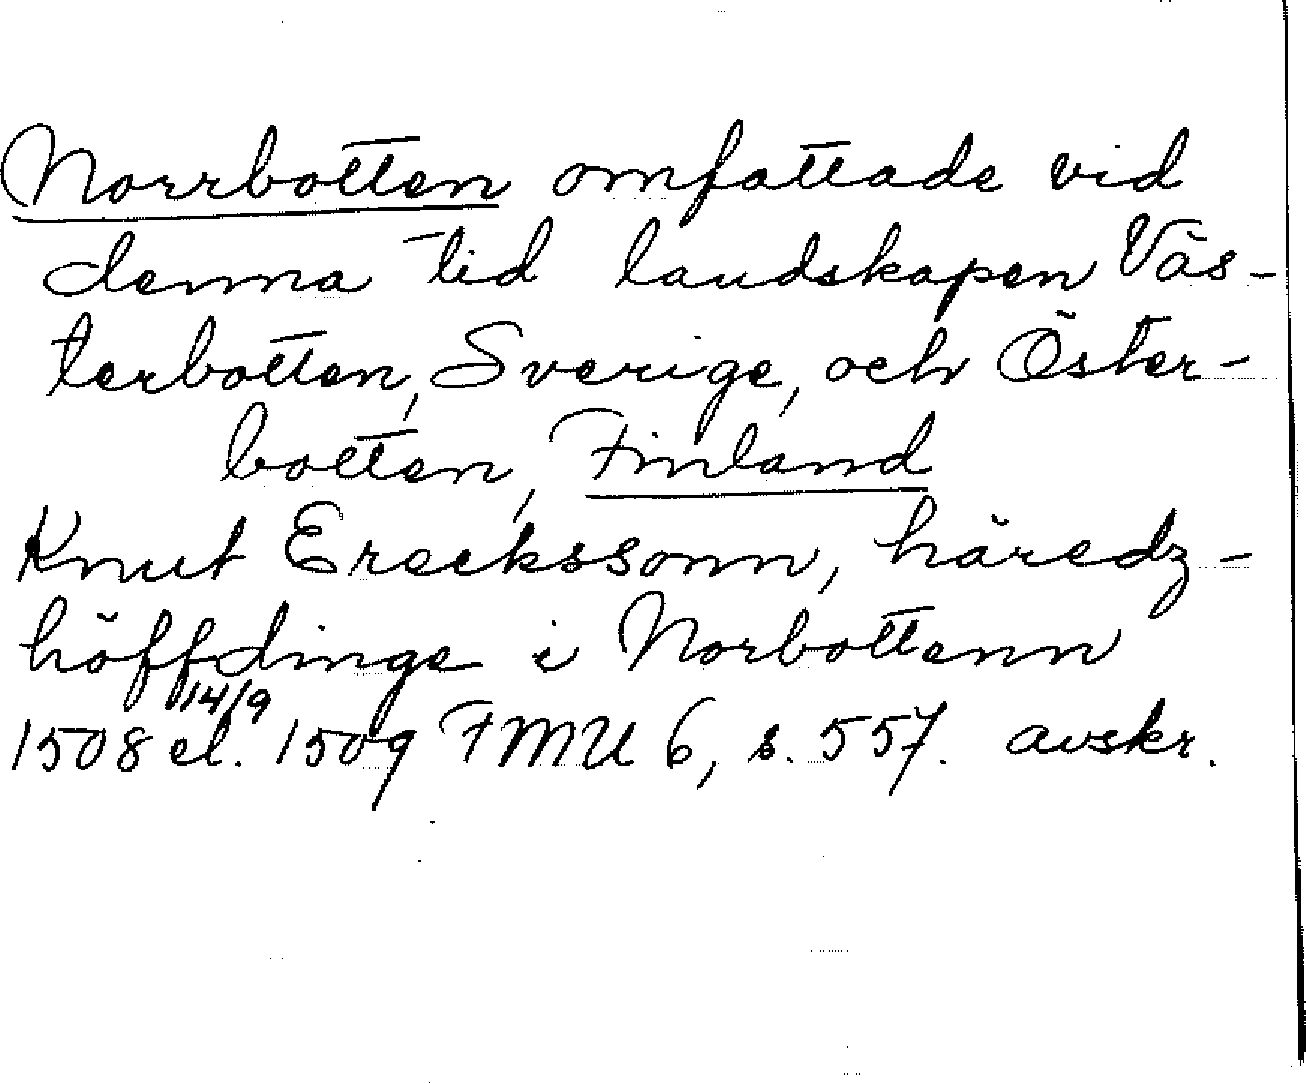 Norrbotten omfattade vid
denna tid landskapen Väs-
terbotten, Sverige, och Öster-
botten, Finland
Knut Ereckssonn, häredz-
höffdinge i Norbottenn
14/9
1508 el. 1509 FMU 6, s. 557. avskr.